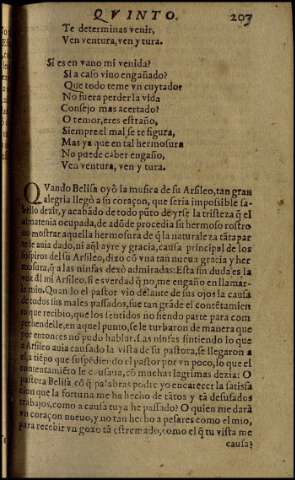 QVINTO. 203
Te determinas venir,
Ven ventura, ven y tura.
Si es en vano mi venida?
Si a caso viuo engañado?
Que todo teme vn cuytador
No fuera perder la vida
Consejo mas acertado?
O temor, eres estraño,
Siempre el mal se te figura,
Mas ya que en tal hermosura
No puede caber engaño,
Ven ventura, ven y tura.
QVando Belisa oyò la musica de su Arsileo, tan gran
alegria llegò a su coraçon, que seria impossible sa-
bello dezir, y acabãdo de todo pũto de yrse la tristeza q̃ el
alma tenia ocupada, de adõde procedia su hermoso rostro
no mostrar aquella hermosura de q̃ la naturaleza tãta par
te le auia dado, ni aq̃l ayre y gracia, causa principal de los
sospiros del su Arsileo, dixo cõ vna tan nueua gracia y her
mosura, q̃ a las ninfas dexò admiradas: Esta sin duda es la
voz dl mi Arsileo, si es verdad q̃ no me engaño en llamar-
le mio. Quando el pastor vio delante de sus ojos la causa
de todos sus males passados, fue tan grãde el contẽtamien
to que recibio, que los sentidos no siendo parte para com
prehendelle, en aquel punto, se le turbaron de manera que
por entonces no pudo hablar. Las ninfas sintiendo lo que
a Arsileo auia causado la vista de su pastora, se llegaron a
el a tiẽpo que suspẽdiendo el pastor vn poco, lo que el
contentamiẽto le causaua, cõ muchas lagrimas dezia: O
pastora Belisa cõ q̃ palabras podre yo encarecer la satisfa
cion que la fortuna me ha hecho de tãtos y tã desusados
trabajos, como a causa tuya he passado? O quien me darà
vn coraçon nueuo, y no tan hecho a pesares como el mio,
para recebir vn gozo tã estremado, como el q̃ tu vista me
causa?